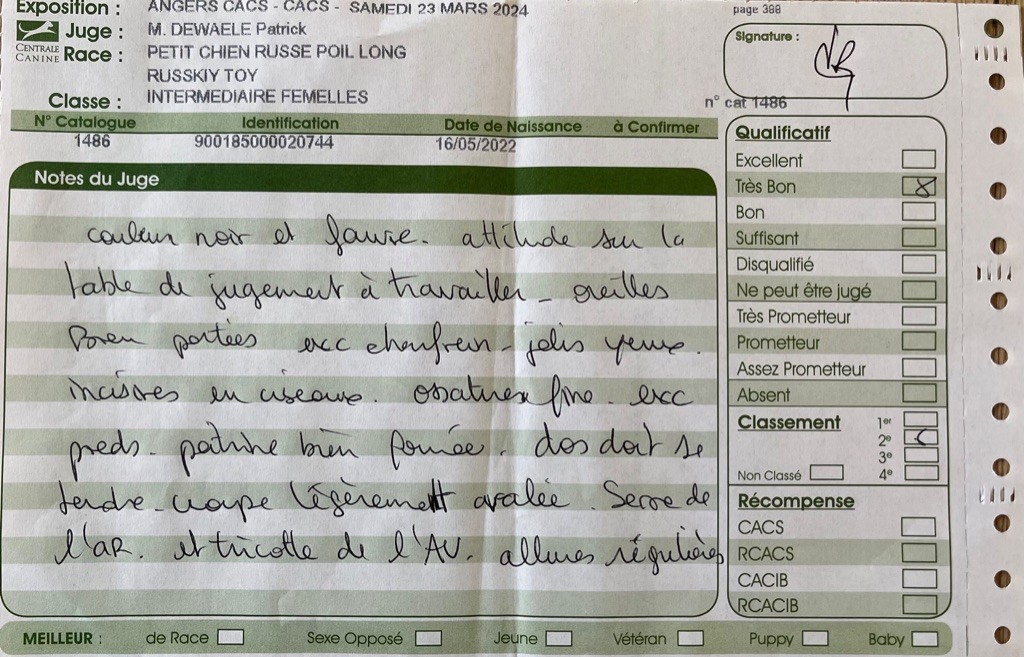 Exposition : ANGERS CACS - CACS - SAMEDI 23 MARS 2024
page 388
CENTRALE CANINE
Juge : M. DEWAELE Patrick
Race : PETIT CHIEN RUSSE POIL LONG
RUSSKIY TOY
Classe : INTERMEDIAIRE FEMELLES
Signature :
n° cat 1486
N° Catalogue Identification Date de Naissance à Confirmer
1486 900185000020744 16/05/2022
Notes du Juge
couleur noir et fauve. attitude sur la
table de jugement à travailler - oreilles
Bien portées exc chanfrein - jolis yeux.
incisives en ciseaux. ossature fine. exc
pieds. poitrine bien formée. dos doit se
tendre - croupe légèrement avalée. Serre de
l'AR. et tricotte de l'AV. allures régulières
Qualificatif
Excellent
Très Bon X
Bon
Suffisant
Disqualifié
Ne peut être jugé
Très Prometteur
Prometteur
Assez Prometteur
Absent
Classement 1er
2e
3e
Non Classé 4e
Récompense
CACS
RCACS
CACIB
RCACIB
MEILLEUR : de Race Sexe Opposé Jeune Vétéran Puppy Baby